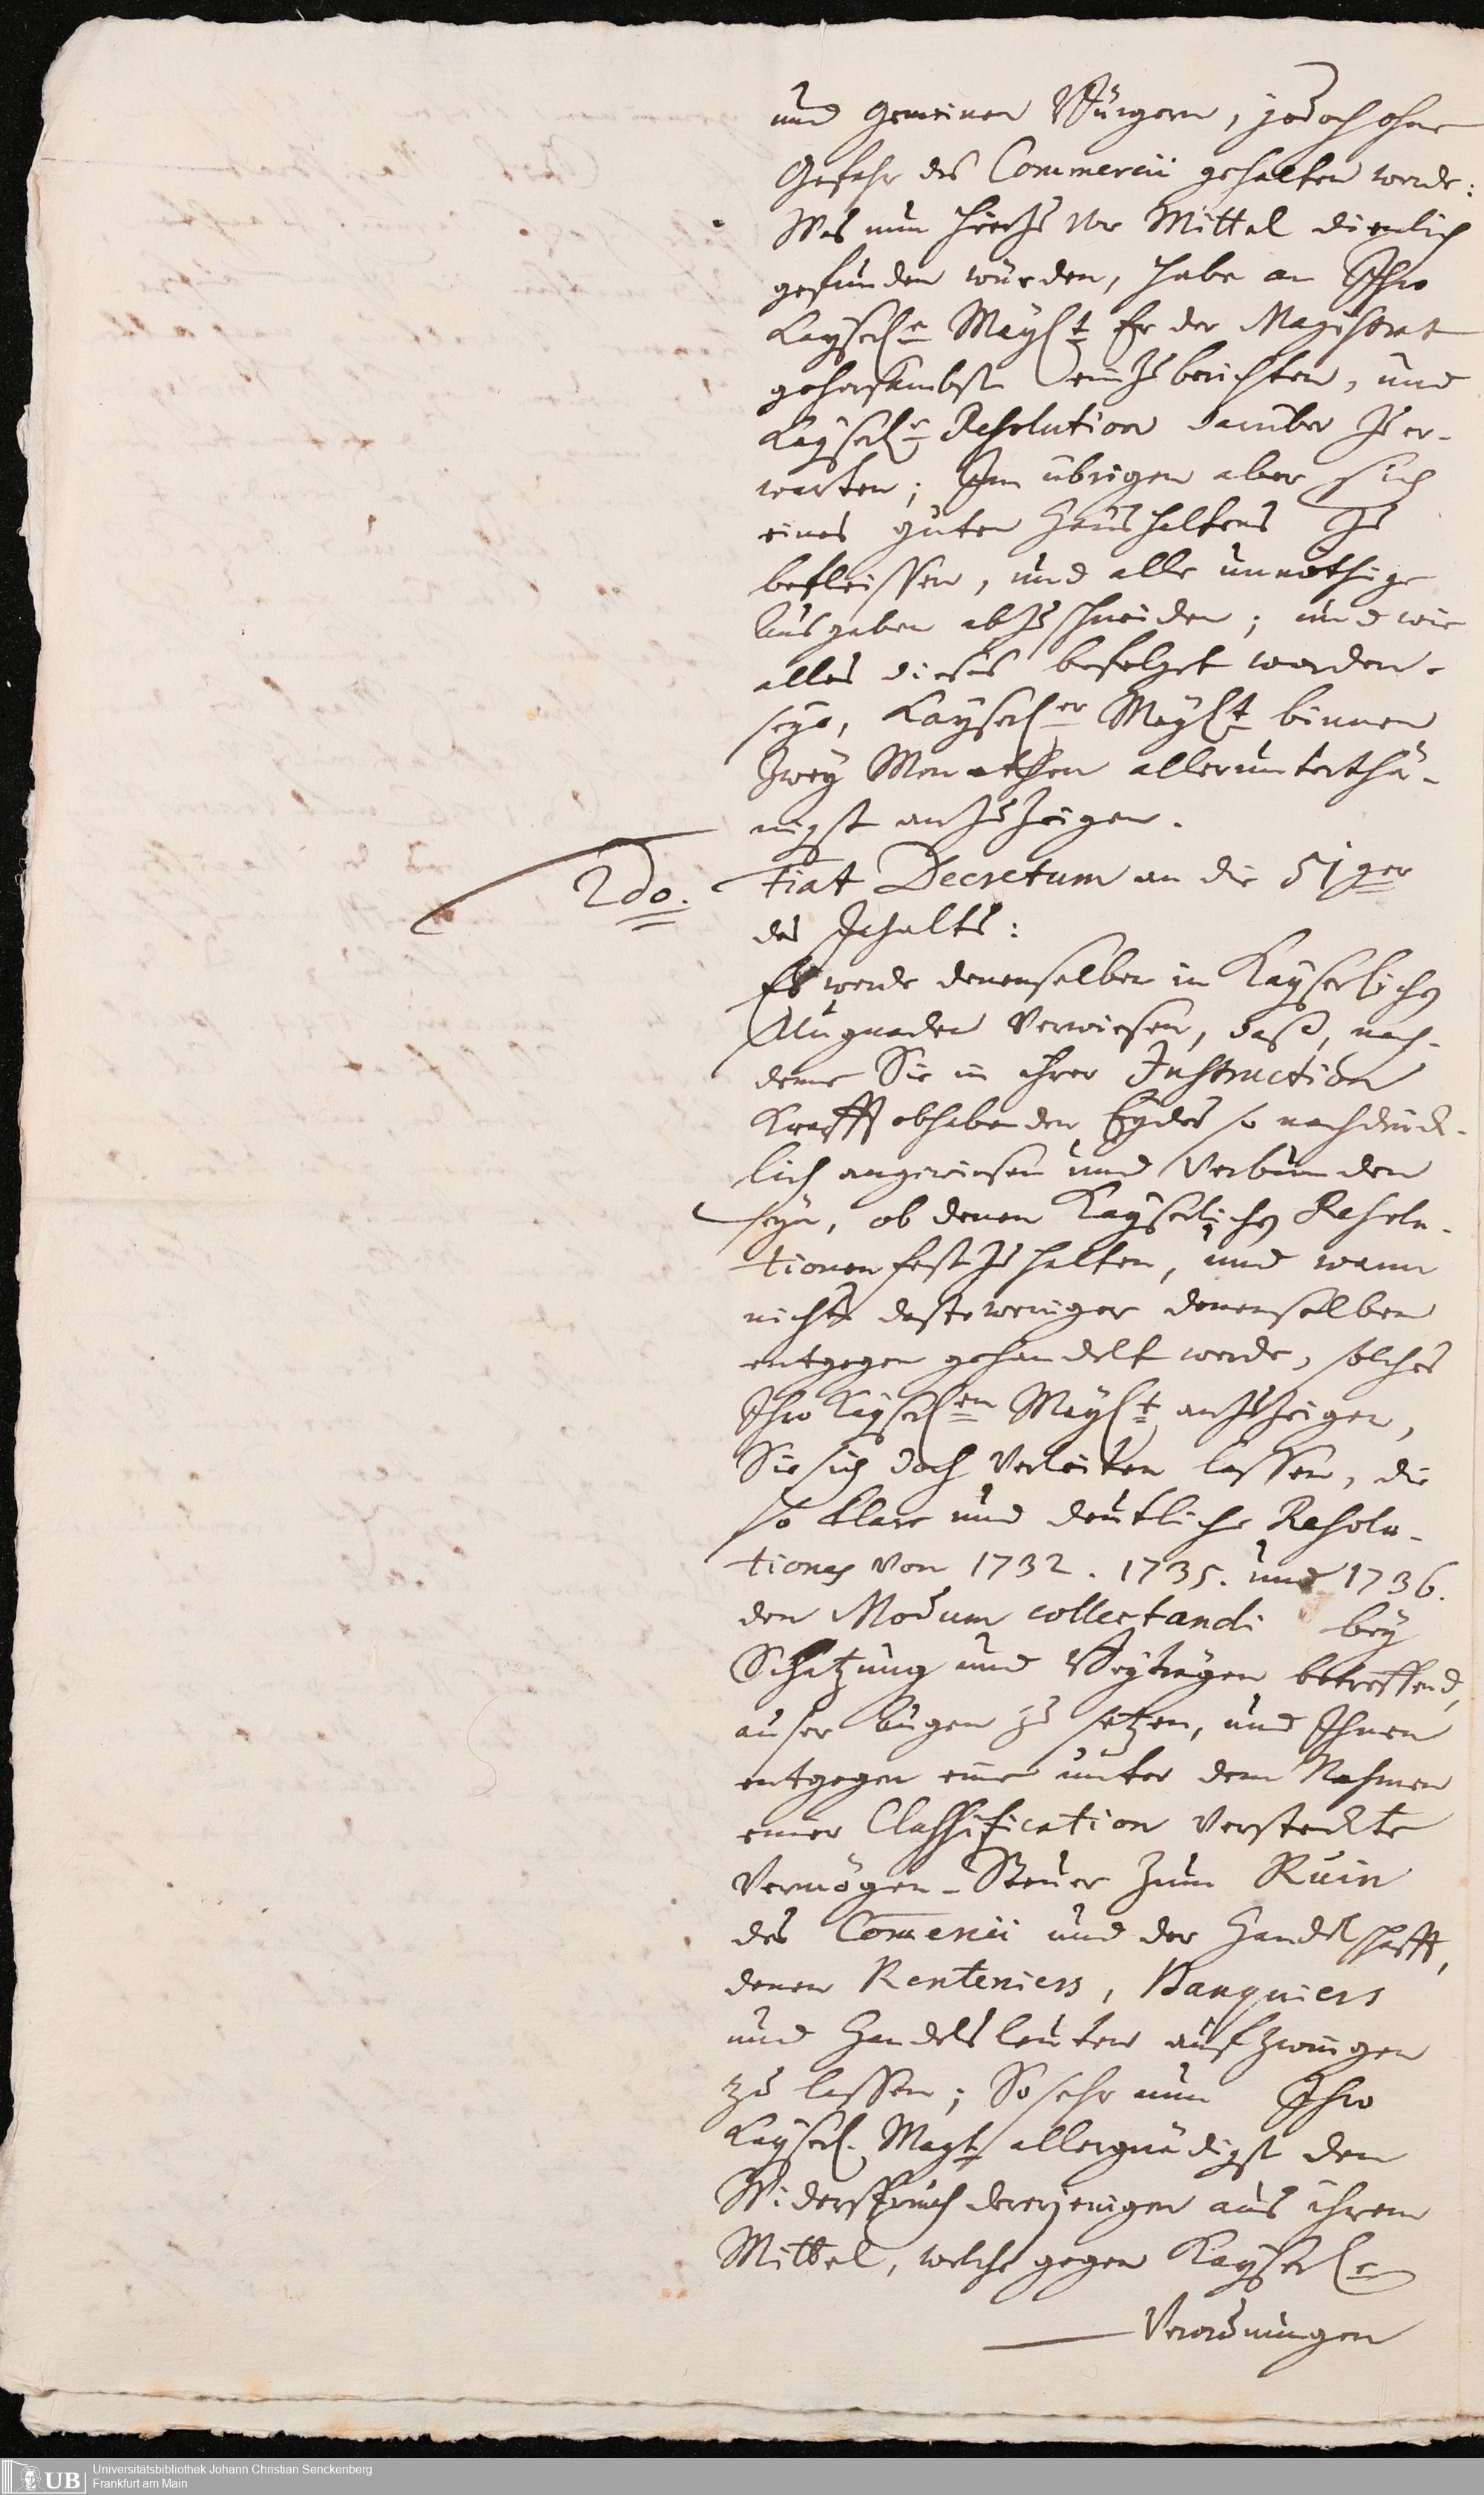 und gemeinen Bürgern, jedoch ohne
Gefahr des Commercii gehalten werde:
Was nun hierzu vor Mittel dienlich
gefunden würden, habe an Ihro
Kayserle Mayst Er der Magistrat
gehorsambst einzuberichten, und
Kayserle Resolution darüber zu er-
warten; Im übrigen aber sich
eines guten Haushaltens zu
befleissen, und alle unnöthige
Ausgaben abzuschneiden; und wie
alles dieses befolget worden
seye, Kayserler Mayst binnen
Zwey Monathen allerunterthä-
nigst anzuzeigen.
2do. Fiat Decretum an die 51ger
des Inhalts:
Es werde denenselben in Kayserlichen
Ungnaden verwiesen, daß, nach-
deme Sie in ihrer Instruction
Krafft obhabenden Eydes so nachdrück-
lich angewiesen und verbunden
seyn, ob denen Kayserlichen Resolu-
tionen fest zu halten, und wann
nichts destoweniger denenselben
entgegen gehandelt werde, solches
Ihro Kayserlen Mayst anzuzeigen,
Sie sich doch verleiten lassen, die
so klare und deutliche Resolu-
tiones von 1732. 1735. und 1736.
den Modum collectandi bey
Schatzung und Beyträgen betreffend,
auser Augen zu setzen, und Ihnen
entgegen eine unter dem Nahmen
einer Classification versteckte
Vermögen-Steuer zum Ruin
des Comercii und der Handelschafft,
denen Renteniers, Banquiers
und Handelsleuten aufzwingen
zu lassen; So sehr nun Ihro
Kayserl. Mayt allergnädigst den
Widerspruch dererjenigen aus ihrem
Mittel, welche gegen Kayserle
Verordnungen
UB Universitätsbibliothek Johann Christian Senckenberg
Frankfurt am Main